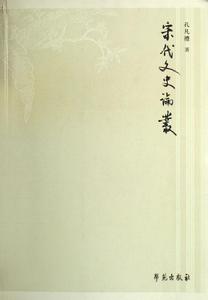 孔凡禮 著
宋代文史論叢
學苑出版社